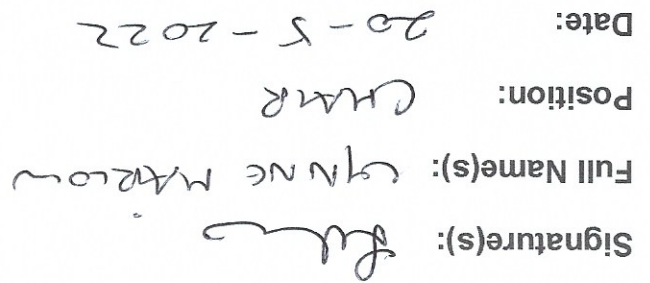 Signature(s):
Full Name(s): LYNNE MARLOW
Position: CHAIR
Date: 20-5-2022